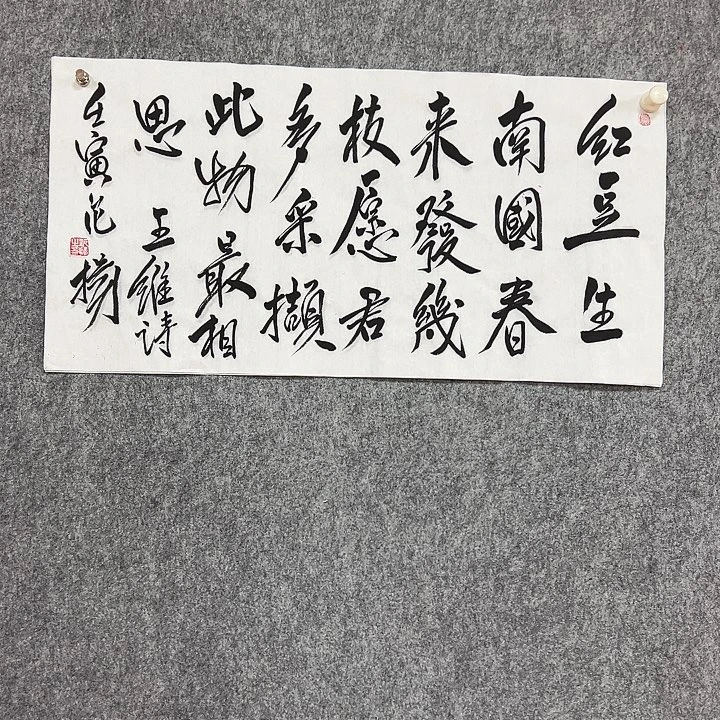 红豆生
南國春
来發幾
枝愿君
多采擷
此物最相
思 王維诗
壬寅范